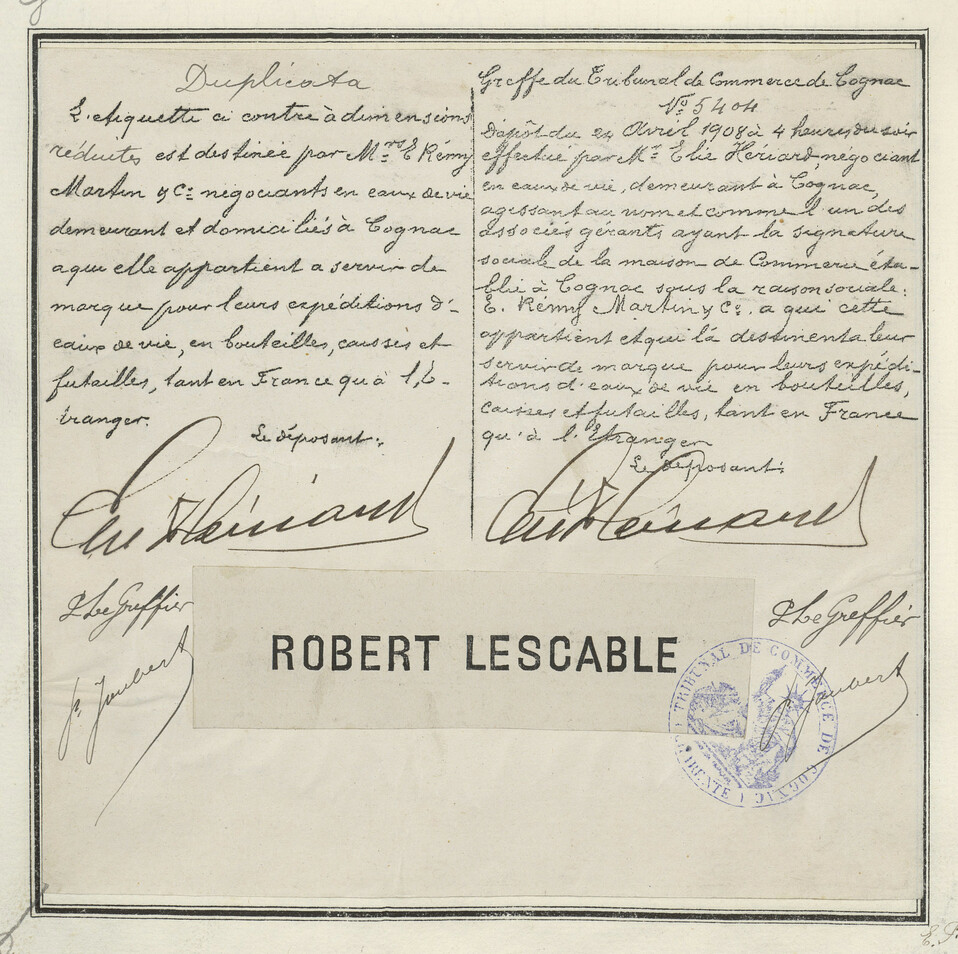 Duplicata
L'etiquette ci contre à dimensions
réduites est destinée par M.rs E Rémy
Martin & Cie négociants en eaux de vie
demeurant et domiciliés à Cognac
a qui elle appartient a servir de
marque pour leurs expéditions d'-
eaux de vie, en bouteilles, caisses et
futailles, tant en France qu'à l'E-
tranger.
Le déposant:
Elie Hériard
Greffe du Tribunal de Commerce de Cognac
No 5404
Dépôt du 24 Avril 1908 à 4 heures du soir
effectué par Mr Elie Hériard, négociant
en eaux de vie, demeurant à Cognac,
agissant au nom et comme l'un des
associés gérants ayant la signature
sociale de la maison de Commerce éta-
blie à Cognac sous la raison sociale:
E. Rémy Martin & Co. a qui cette
appartient et qui la destinent a leur
servir de marque pour leurs expédi-
tions d'eaux de vie en bouteilles,
caisses et futailles, tant en France
qu'à l'Etranger
Le déposant:
Elie Hériard
P Le Greffier
P. Joubert
ROBERT LESCABLE
P Le Greffier
P. Joubert
TRIBUNAL DE COMMERCE DE COGNAC
CHARENTE
E. P.